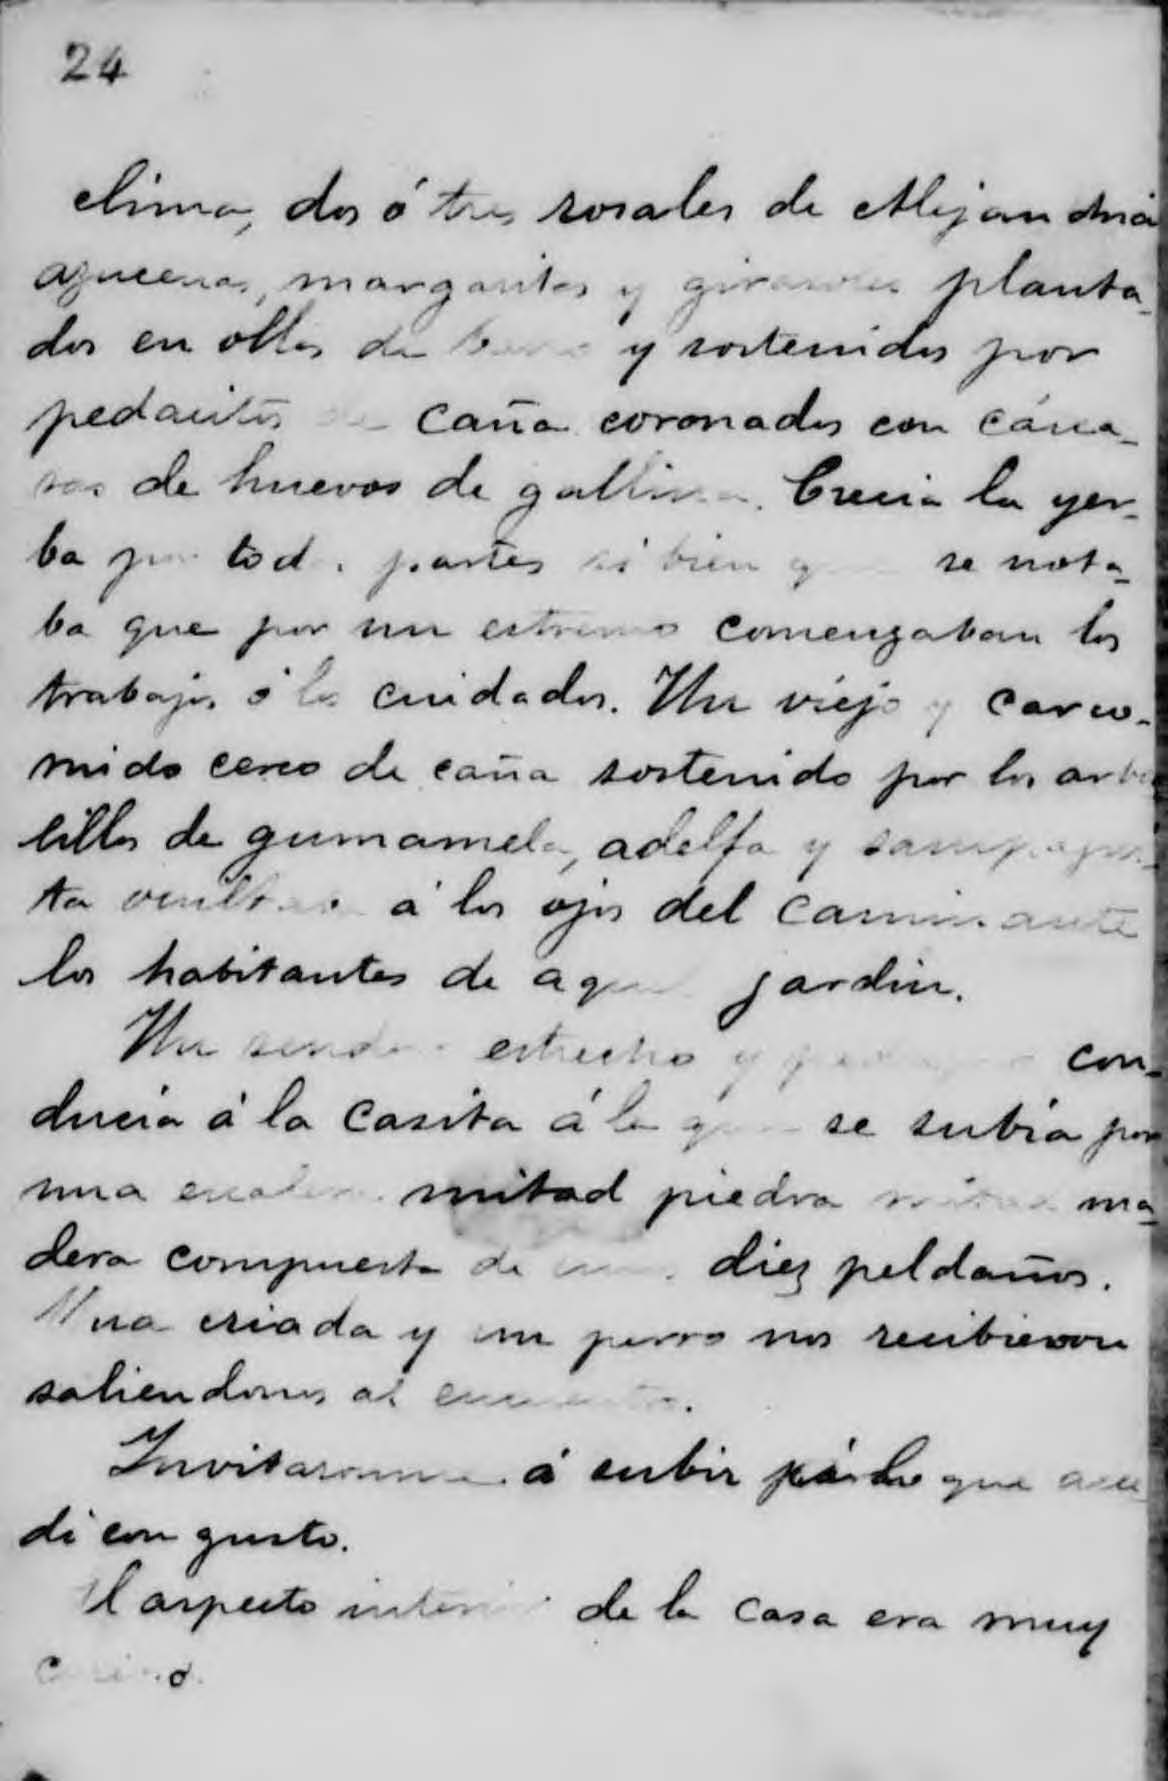 24
clima, dos ó tres rosales de Alejandria
azucenas, margaritas y girasoles planta-
dos en ollas de barro y sostenidos por
pedacitos de caña coronados con cásca-
ras de huevos de gallina. Crecia la yer-
ba por todas partes si bien que se nota-
ba que por un estremo comenzaban los
trabajos ó los cuidados. Un viejo y carco-
mido cerco de caña sostenido por los arbo
lillos de gumamela, adelfa y sampagui-
ta ocultaba á los ojos del caminante
los habitantes de aquel jardin.
Un sendero estrecho y con-
ducía á la casita á la que se subía por
una escalera mitad piedra mitad ma-
dera compuesta de unos diez peldaños.
Una criada y un perro nos recibieron
saliendonos al encuentro.
Invitaronme á subir á lo que acce
dí con gusto.
El aspecto interior de la casa era muy